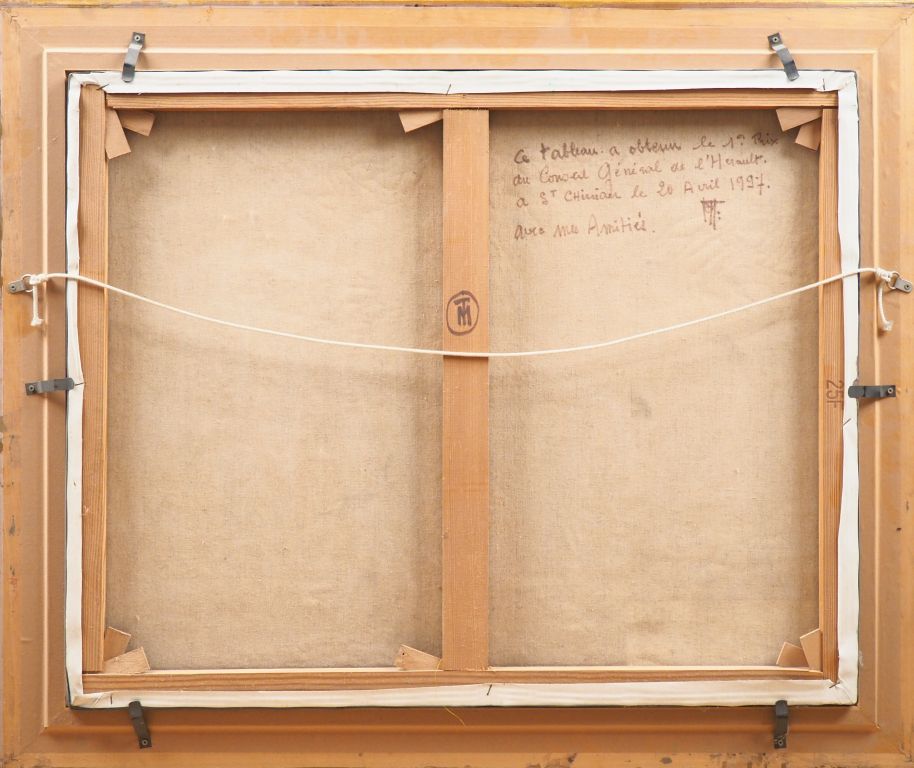 Ce tableau a obtenu le 1º Prix
du Conseil Général de l'Herault.
a ST CHinian le 20 Avril 1997.
avec mes Amitiés.
TM
25F